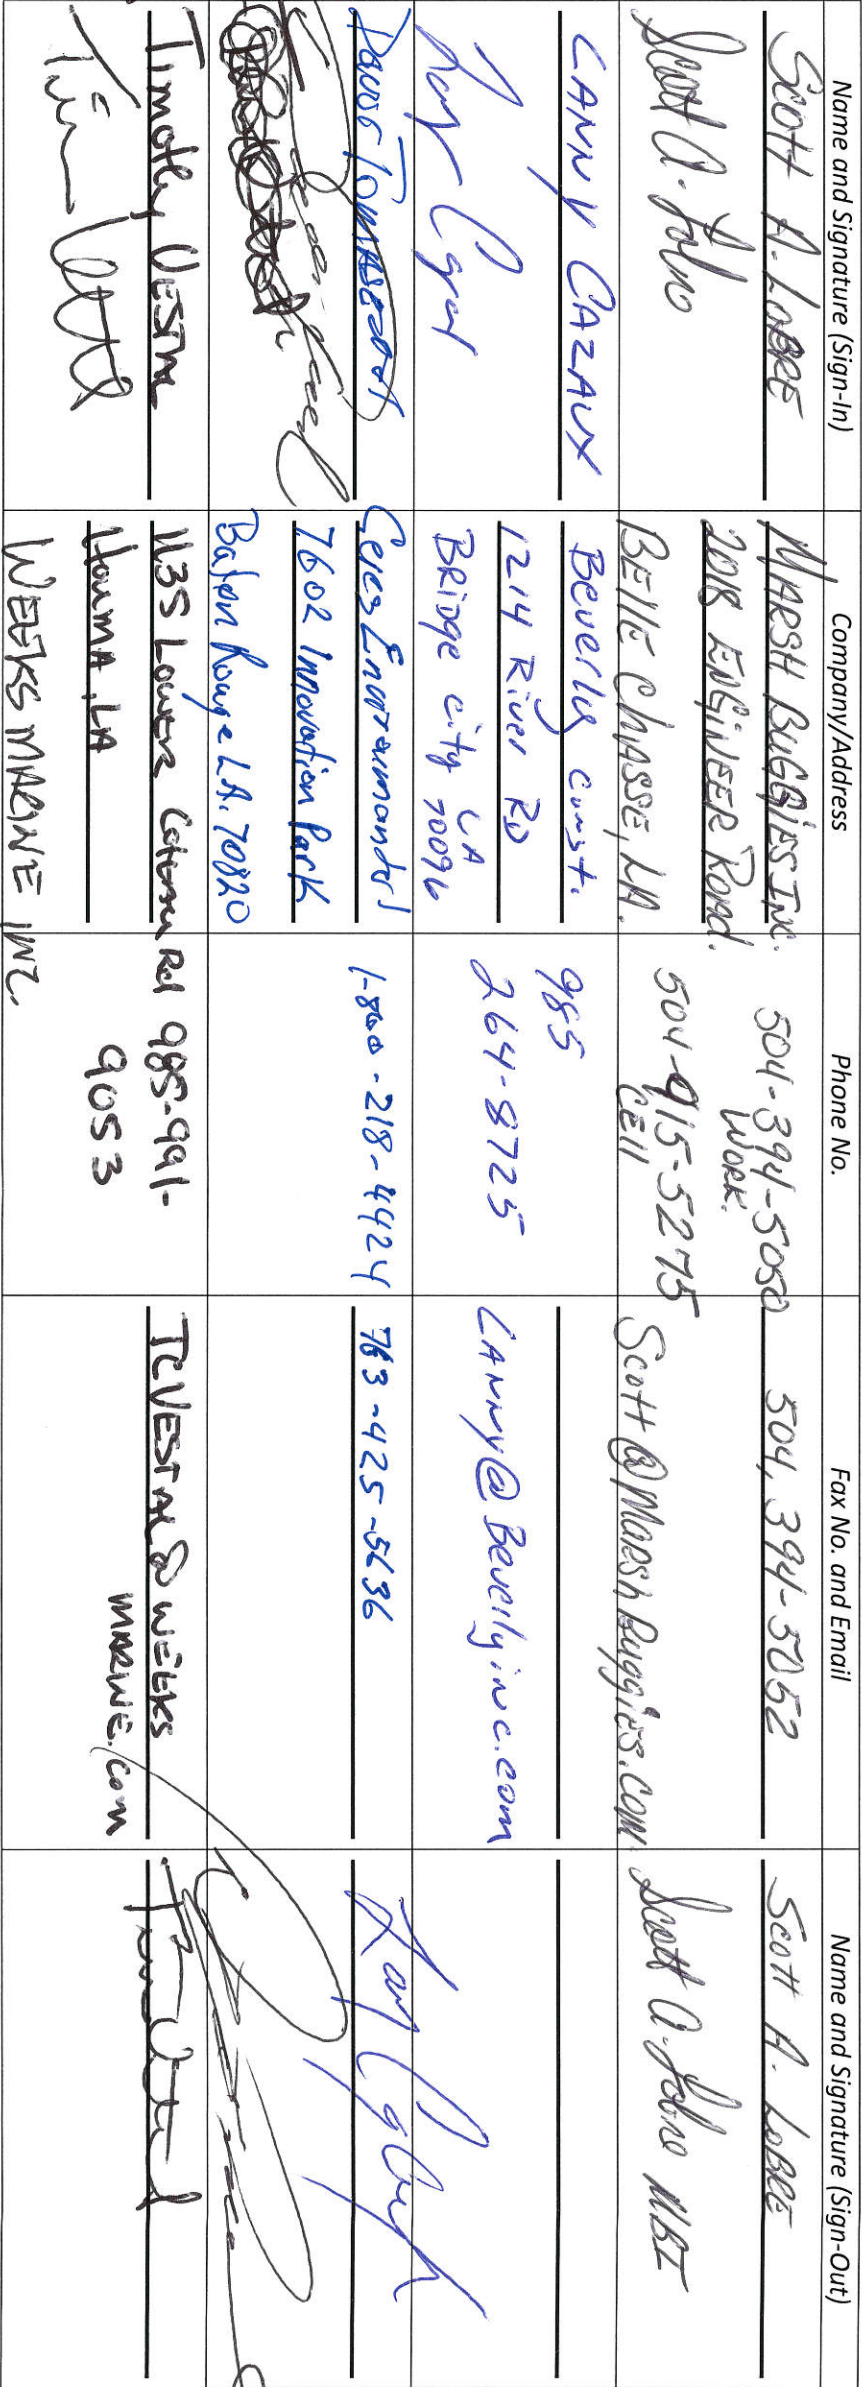 Name and Signature (Sign-In) Company/Address Phone No. Fax No. and Email Name and Signature (Sign-Out)
Scott A. LoBRE
Scott A.
MARSH BUGGIES INC.
2018 ENGINEER Road.
BEllE CHASSE, LA.
504-394-5050
WORK.
504-915-5275
CEll
504, 394-5052
Scott@MarshBuggies.com
Scott A. LoBRE
Scott A. MBI
LANNY CAZAUX
Beverly const.
1214 River RD
BRidge city LA 70096
985
264-8725
LANNY@Beverlyinc.com
Ceres Environmental
7602 Innovation Park
Baton Rouge LA. 70820
1-800-218-4424
763-425-5636
Timothy VESTAL
Tim
1135 Lower Rd
Houma, LA
WEEKS MARINE INC.
985-991-
9053
TCVESTAL@WEEKS
MARINE.com